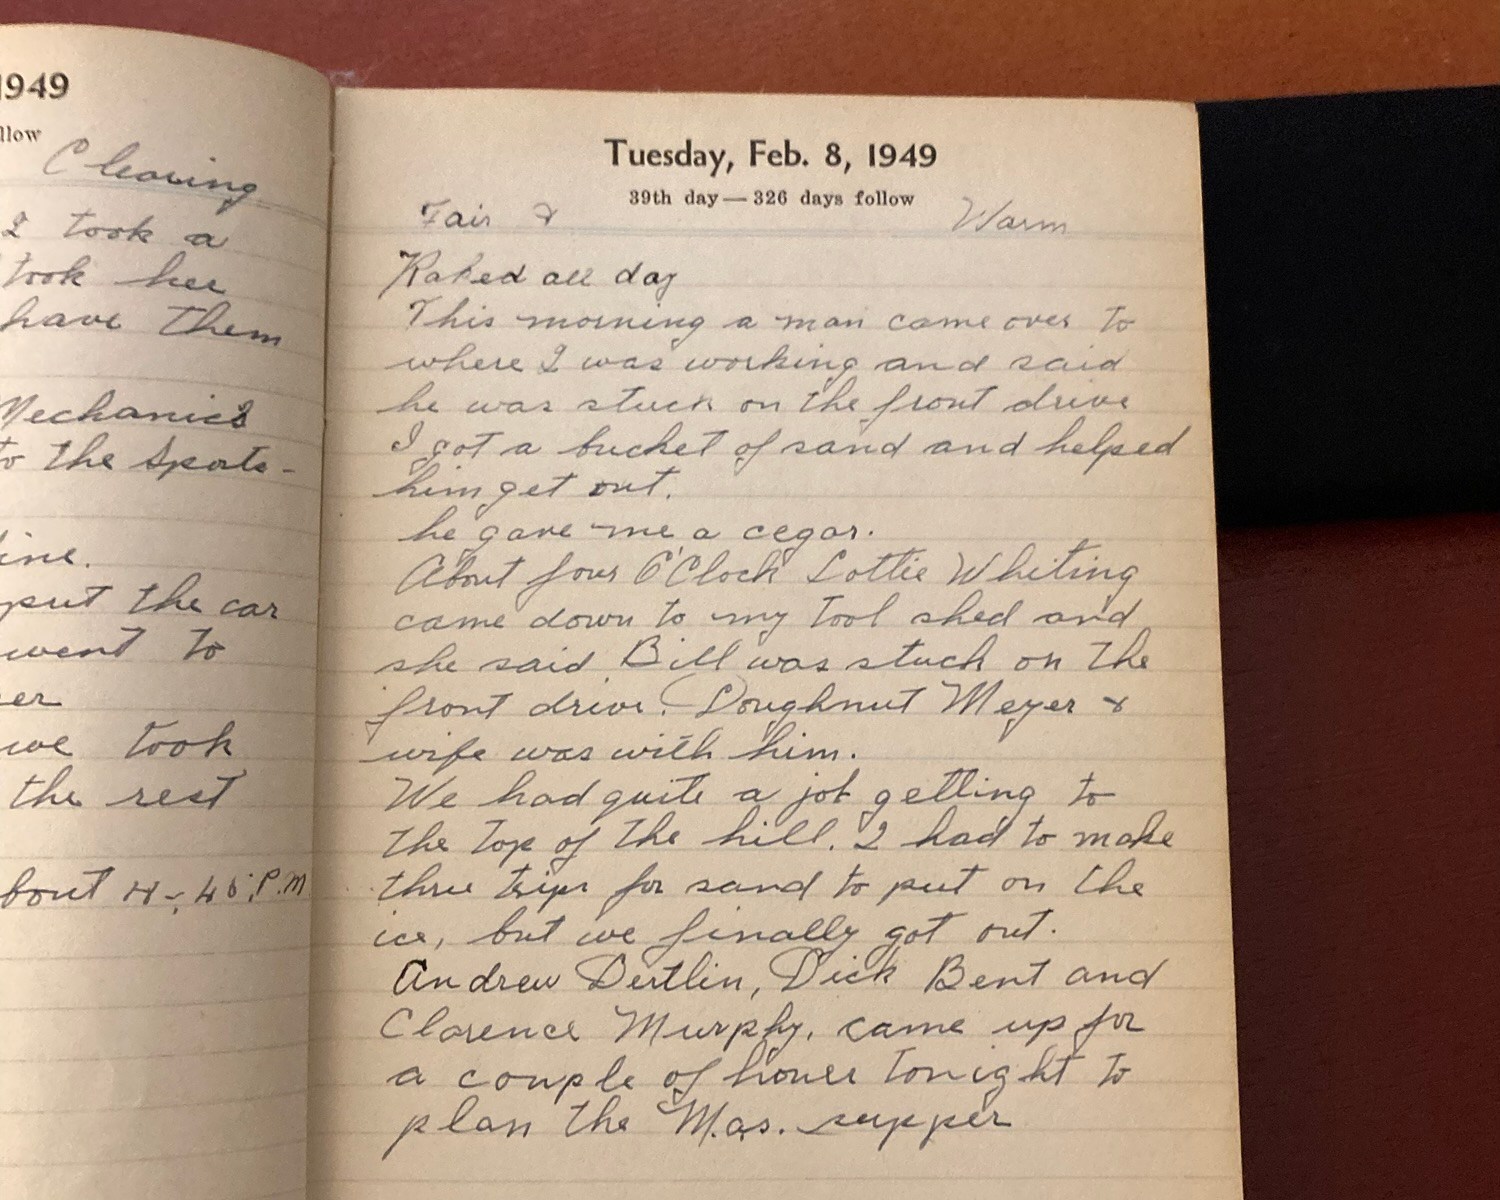 1949
llow
Clearing
I took a
took her
have them
Mechanics
to the Sports-
line.
put the car
went to
er
we took
the rest
bout 4-45 P.M
Tuesday, Feb. 8, 1949
39th day — 326 days follow
Fair & Warm
Raked all day
This morning a man came over to
where I was working and said
he was stuck on the front drive
I got a bucket of sand and helped
him get out.
he gave me a cegar.
About four O'Clock Lottie Whiting
came down to my tool shed and
she said Bill was stuck on the
front drive. Doughnut Meyer &
wife was with him.
We had quite a job getting to
the top of the hill. I had to make
three trips for sand to put on the
ice, but we finally got out.
Andrew Dertlin, Dick Bent and
Clarence Murphy, came up for
a couple of hours tonight to
plan the Mas. supper